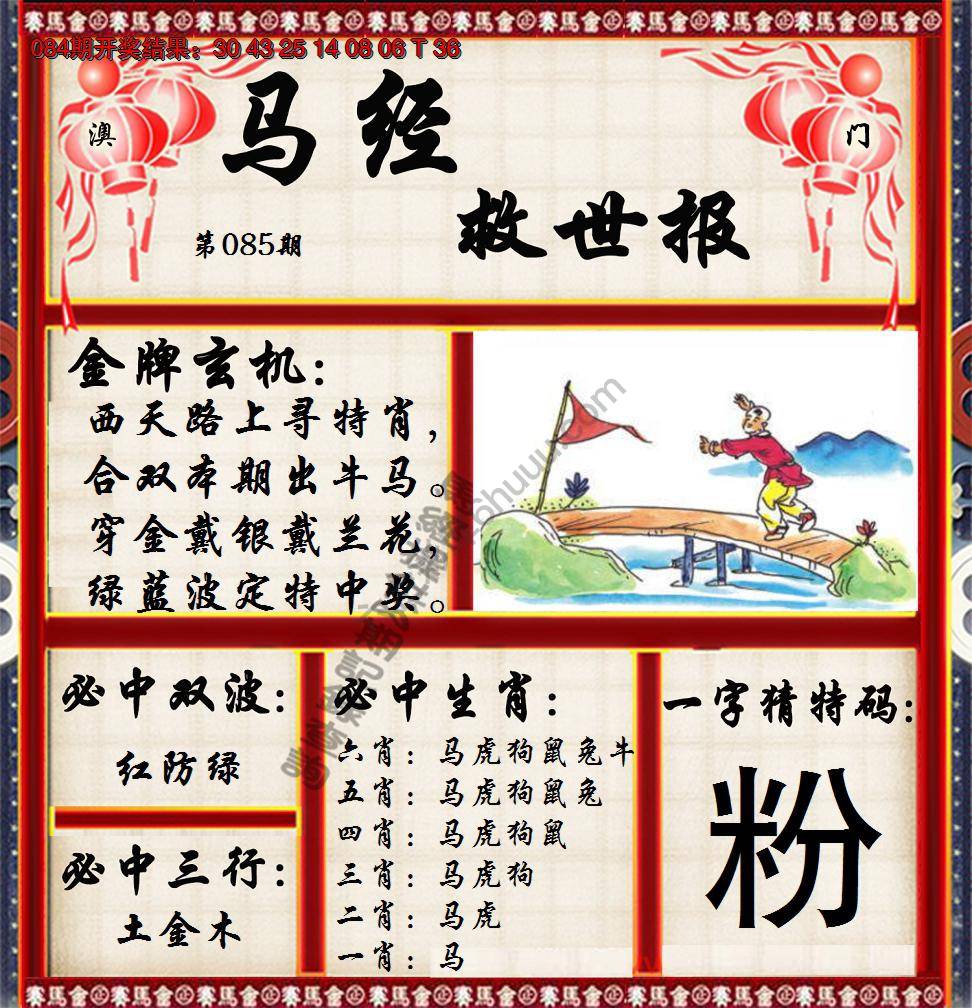 084期开奖结果：30 43 25 14 08 06 T 36
澳
门
马经
救世报
第085期
金牌玄机：
西天路上寻特肖，
合双本期出牛马。
穿金戴银戴兰花，
绿蓝波定特中奖。
必中双波：
红防绿
必中三行：
土金木
必中生肖：
六肖：马虎狗鼠兔牛
五肖：马虎狗鼠兔
四肖：马虎狗鼠
三肖：马虎狗
二肖：马虎
一肖：马
一字猜特码：
粉